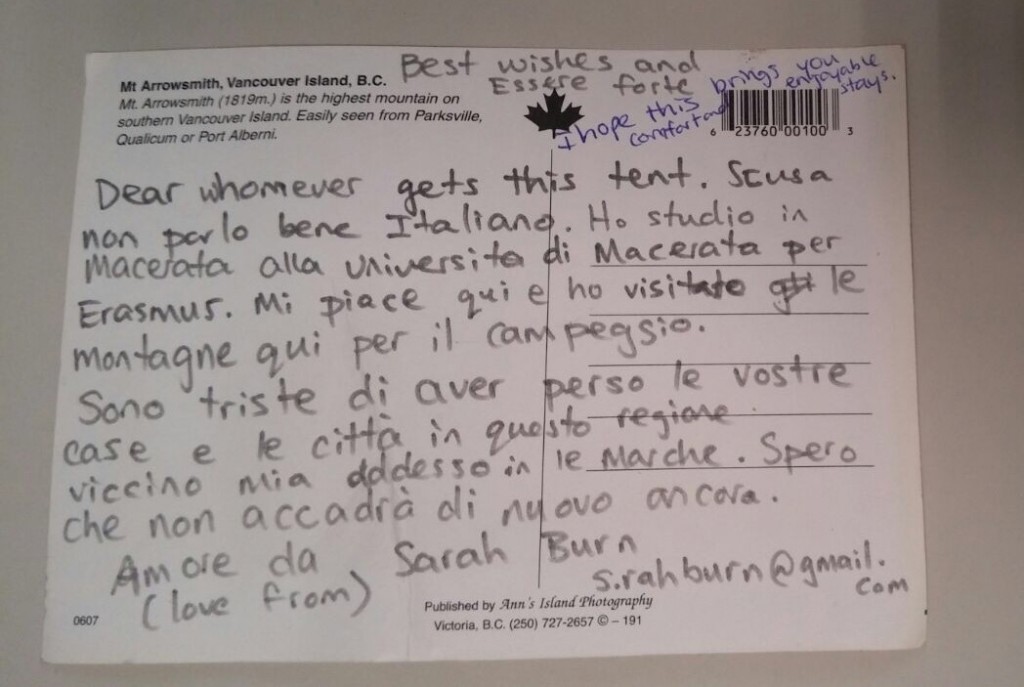 Best wishes and
Essere forte
I hope this brings you
comfort and enjoyable
stays.
Mt Arrowsmith, Vancouver Island, B.C.
Mt. Arrowsmith (1819m.) is the highest mountain on
southern Vancouver Island. Easily seen from Parksville,
Qualicum or Port Alberni.
6 23760 00100 3
Dear whomever gets this tent. Scusa
non parlo bene Italiano. Ho studio in
Macerata alla universita di Macerata per
Erasmus. Mi piace qui e ho visitato le
montagne qui per il campeggio.
Sono triste di aver perso le vostre
case e le città in questo regione
viccino mia addesso in le Marche. Spero
che non accadrà di nuovo ancora.
Amore da Sarah Burn
(love from) s.rahburn@gmail.
com
0607
Published by Ann's Island Photography
Victoria, B.C. (250) 727-2657 © – 191